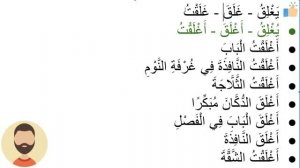 يَغْلِقُ - غَلَقَ - غَلَقْتُ
يُغْلِقُ - أَغْلَقَ - أَغْلَقْتُ
أَغْلَقْتُ الْبَابَ
أَغْلَقْتُ النَّافِذَةَ فِي غُرْفَةِ النَّوْمِ
أَغْلَقْتُ الثَّلَّاجَةَ
أَغْلَقَ الدُّكَّانَ مُبَكِّرًا
أَغْلَقَ الْبَابَ فِي الْفَصْلِ
أَغْلَقَ النَّافِذَةَ
أَغْلَقْتُ الشَّقَّةَ